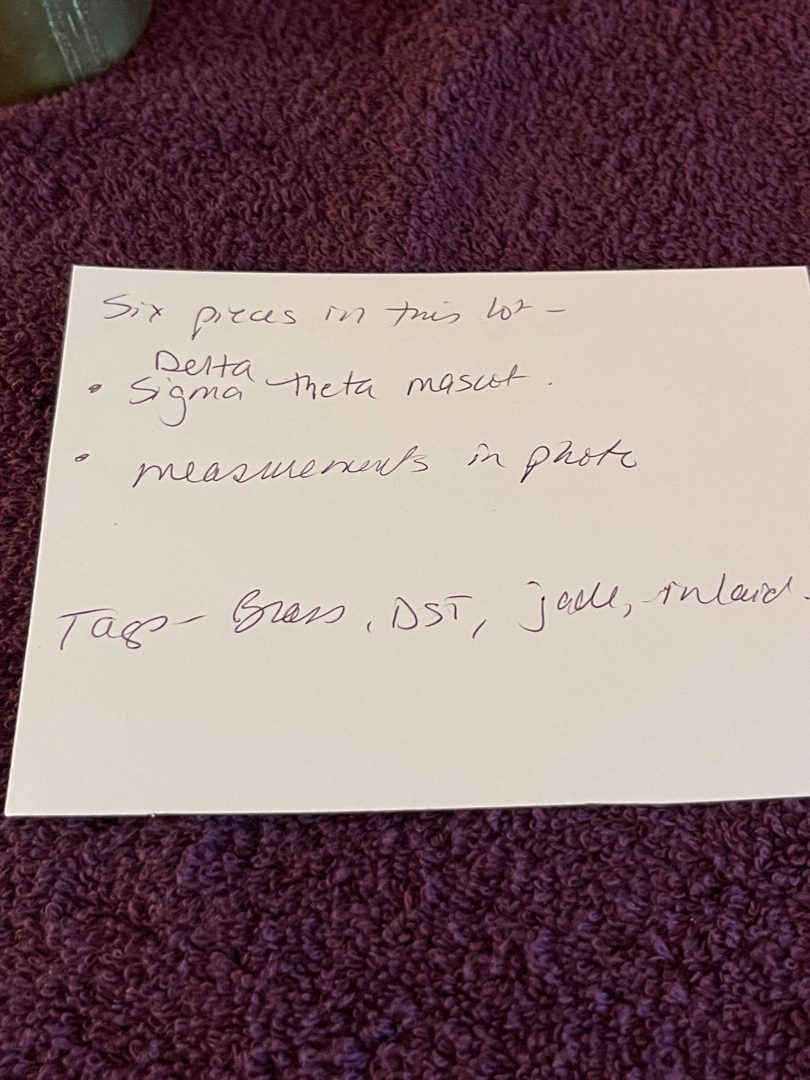 Six pieces in this lot -
Delta
• Sigma theta mascot.
• measurements in photo
Tags - Brass, DST, jade, inlaid.